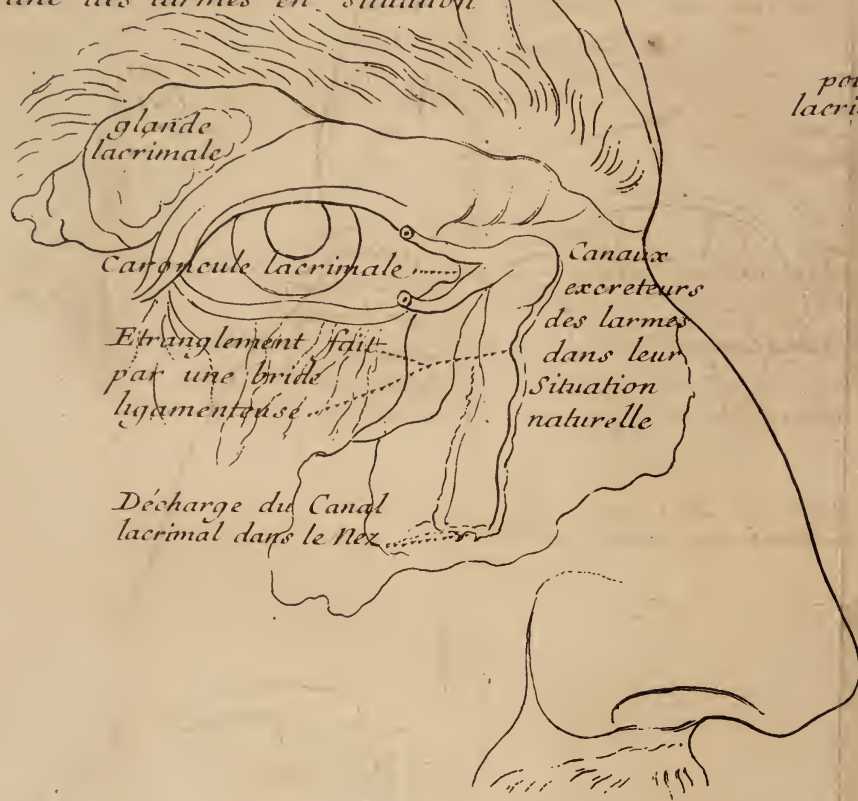 des larmes en situation
glande
lacrimale
Caroncule lacrimale
Canaux
excreteurs
des larmes
dans leur
Situation
naturelle
Etranglement fait
par une bride
ligamenteuse
Décharge du Canal
lacrimal dans le Nez